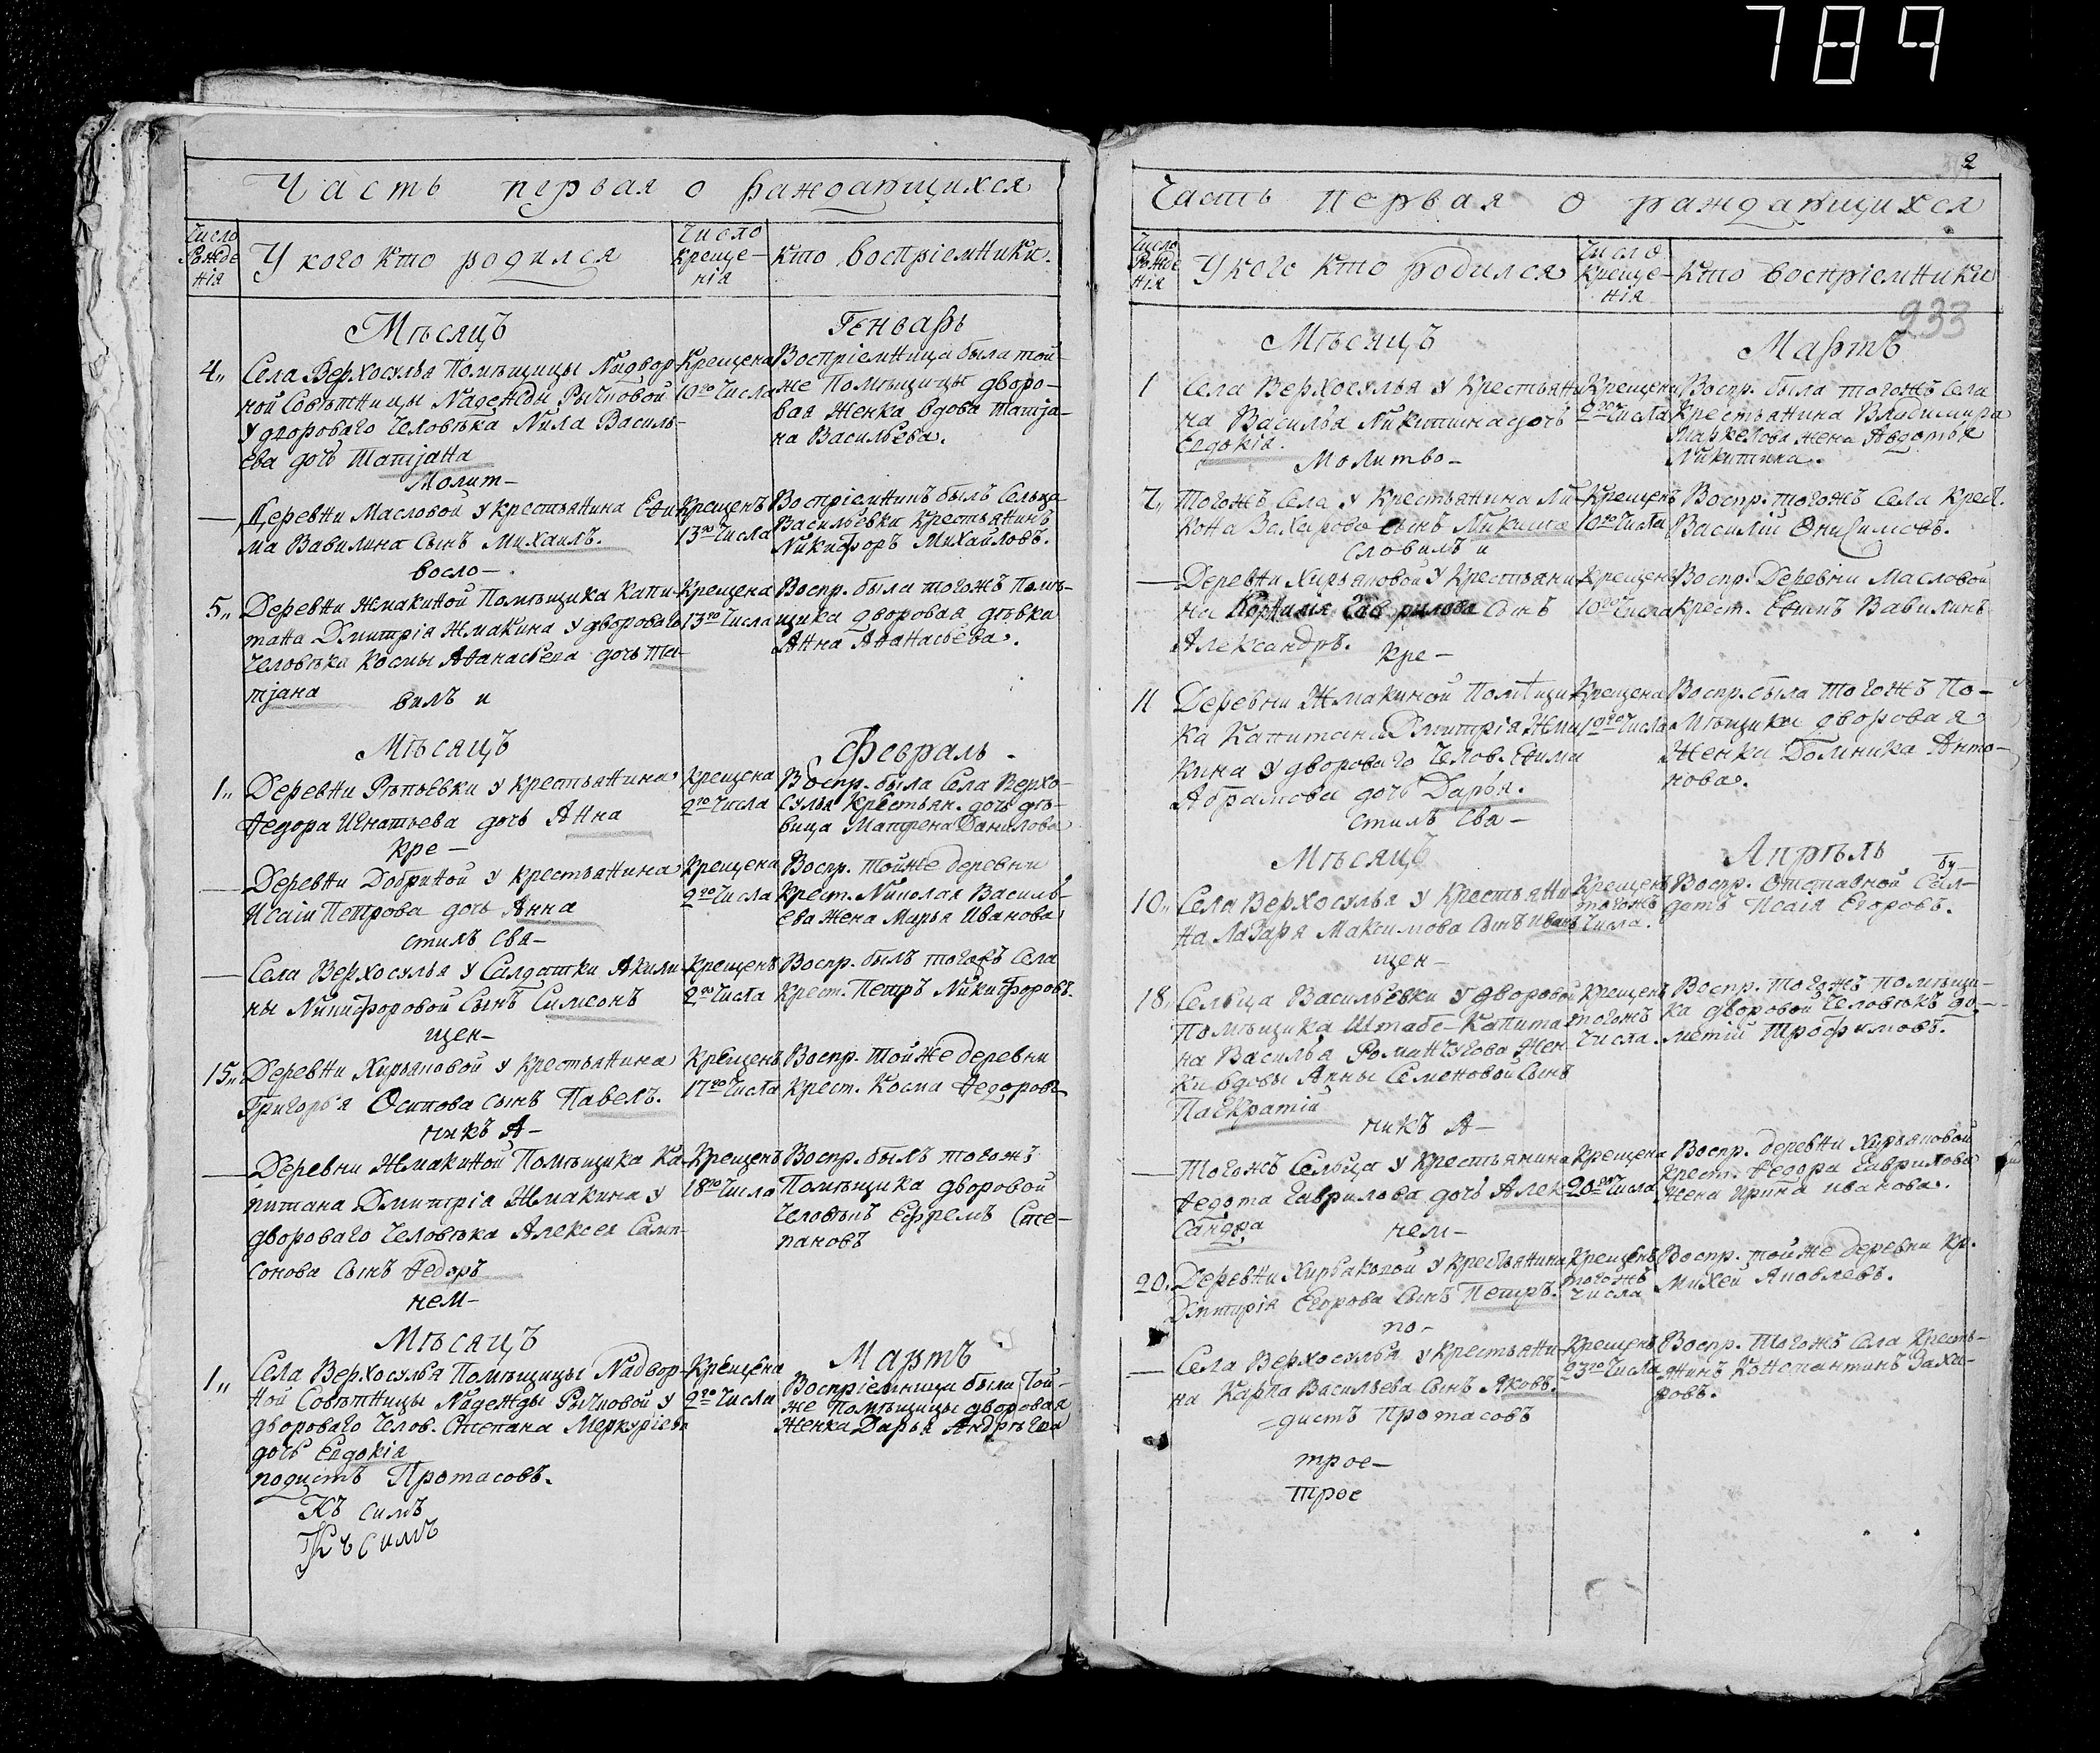 789
Часть первая о раждающихся
Число Рожде нія
У кого кто родился
Число креще- нія
кто воспріемники
Мѣсяцъ
Генварь
4„
Села Верхосулья Помѣщицы Надвор-
ной Совѣтницы Надежды Рычковой
У двороваго человѣка Нила Василь-
ева дочь Татіана
Крещена
10го Числа
Воспріемница была той-
же Помѣщицы дворо-
вая женка вдова Татіа-
на Васильева.
Молит-
—
Деревни Масловой у крестьянина Ефи-
ма Вавилина Сынъ Михаилъ.
Крещенъ
13го Числа
Воспріемникъ былъ Сельца
Васильевки Крестьянинъ
Никифоръ Михайловъ.
восло-
5„
Деревни Жмакиной Помѣщика Капи-
тана Дмитрія Жмакина у двороваго
Человѣка Космы Аѳанасьева дочь Та-
тіана
Крещена
13го Числа
Воспр. была тогожъ Помѣ-
щика дворовая дѣвка
Анна Аѳанасьева.
вилъ и
Мѣсяцъ
Февраль
1„
Деревни Рѣпьевки у крестьянина
Ѳедора Игнатьева дочь Анна
Крещена
2го Числа
Воспр. была Села Верхо-
сулья Крестьян. дочь дѣ-
вица Матрена Данилова
кре-
—
Деревни Добриной у крестьянина
Исаіи Петрова дочь Анна
Крещена
2го Числа
Воспр. тойже деревни
Крест. Николая Василь-
ева жена Марья Иванова
стилъ Свя-
—
Села Верхосулья у Салдатки Акили-
ны Никифоровой Сынъ Симеонъ
Крещенъ
2го Числа
Воспр. былъ тогожъ Села
Крест. Петръ Никифоровъ.
щен-
15„
Деревни Хирьяковой у крестьянина
Григорья Осипова сынъ Павелъ.
Крещенъ
17го Числа
Воспр. тойже деревни
Крест. Косма Ѳедоровъ
никъ А-
—
Деревни Жмакиной Помѣщика Ка-
питана Дмитрія Жмакина у
двороваго человѣка Алексея Самп-
сонова Сынъ Ѳедоръ
Крещенъ
18го Числа
Воспр. былъ тогожъ
Помѣщика дворовой
Человѣкъ Ефремъ Сте-
пановъ
нем-
Мѣсяцъ
Мартъ
1„
Села Верхосулья Помѣщицы Надвор-
ной Совѣтницы Надежды Рычковой у
двороваго Челов. Степана Меркурьева
дочь Евдокія
Крещена
2го Числа
Воспріемница была той-
же Помѣщицы дворовая
женка Дарья Андрѣева
подистъ Протасовъ.
Къ симъ
Къ симъ
2
Часть первая о раждающихся
Число Рожде нія
У кого кто родился
Число Креще- нія
Кто воспріемники
933
Мѣсяцъ
Мартъ
1
Села Верхосулья у Крестьяни-
на Василья Никитина дочь
Евдокія.
Крещена
2го Числа
Воспр. была тогожъ Села
Крестьянина Владимира
Маркелова жена Авдотья
Никитина.
Молитво-
7„
Тогожъ Села у Крестьянина Ни-
кона Захарова сынъ Никита
Крещенъ
10го Числа
Воспр. тогожъ Села Крест.
Василій Онисимовъ.
словилъ и
—
Деревни Хирьяковой у Крестьяни-
на Гаврилова Сынъ
Александръ.
Крещенъ
10го Числа
Воспр. Деревни Масловой
крест. Ефимъ Вавилинъ
кре-
11
Деревни Жмакиной Помѣщи-
ка Капитана Дмитрія Жма-
кина у двороваго Челов. Ефима
Абрамова дочь Дарья.
Крещена
19го Числа
Воспр. была тогожъ По-
мѣщика дворовая
Женка Домника Анто-
нова.
стилъ Свя-
Мѣсяцъ
Апрѣль
10„
Села Верхосулья у Крестьяни-
на Лазаря Максимова Сынъ Иванъ
Крещенъ
тогожъ
Числа.
Воспр. Отставной Сал-
датъ Исаія Егоровъ.
щен-
18„
Сельца Васильевки у дворовой
Помѣщика Штабс-Капита-
на Василья Романчугова жен-
ки вдовы Анны Семеновой Сынъ
Панкратій
Крещенъ
тогожъ
Числа.
Воспр. тогожъ помѣщи-
ка дворовой Человѣкъ До-
метій Трофимовъ.
никъ А-
—
Тогожъ Сельца у Крестьянина
Ѳедота Гаврилова дочь Алек-
сандра
Крещена
20го Числа
Воспр. деревни Хирьяковой
Крест. Ѳедора Гаврилова
жена Ирина Иванова.
нем-
20„
Деревни Хирьяковой у Крестьянина
Дмитрія Егорова Сынъ Петръ.
Крещенъ
тогожъ
Числа
Воспр. тойже деревни Кр.
Михей Яковлевъ.
по-
—
Села Верхосулья у крестьяни-
на Карпа Васильева Сынъ Яковъ.
Крещенъ
23го Числа
Воспр. тогожъ Села Кресть-
янинъ Константинъ Заха-
ровъ.
-дистъ Протасовъ
трое-
трое